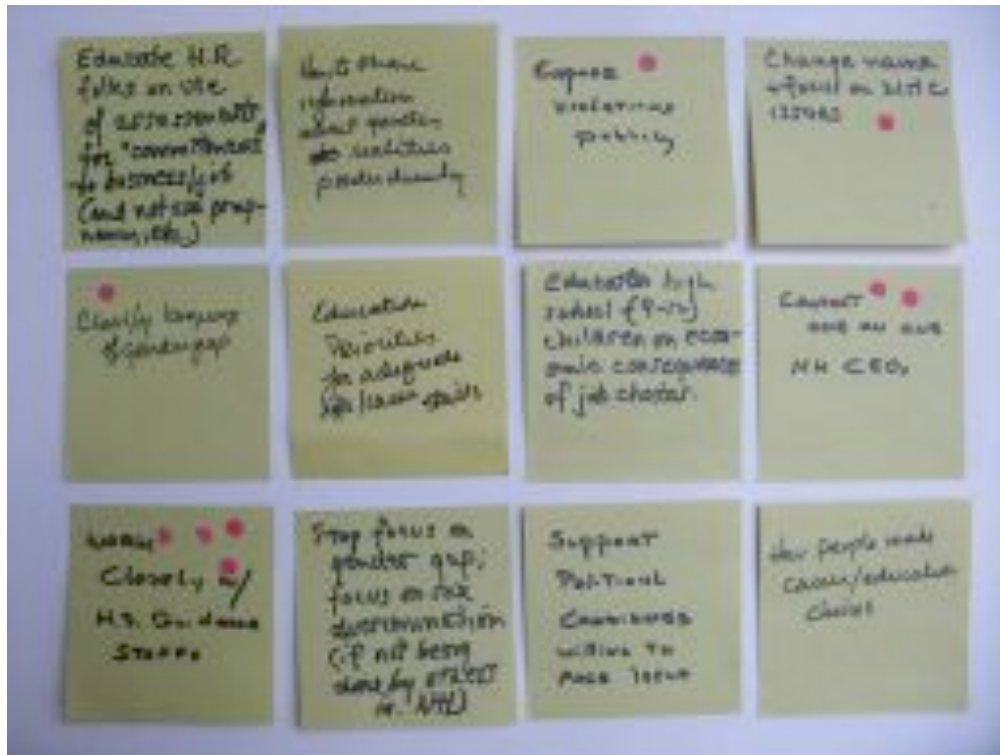 Educate H.R.
folks on use
of assessments
for "commitment"
to business/job
(and not use preg-
nancy, etc.)
How to share
information
about gender
realities
Expose
violations
publicly
Change name
+ focus on
issues
Clarify
of gender gap
Education
Priorities
for adequate
skills
high
school (9-12)
children on econ-
omic consequence
of job choices.
one on one
NH CEOs
Work
Closely w/
H.S. Guidance
Staff
Stop focus on
gender gap;
focus on sex
discrimination
(if not being
done by others
in NH)
Support
Political
Candidates
willing to
issue
How people make
career/education
choices